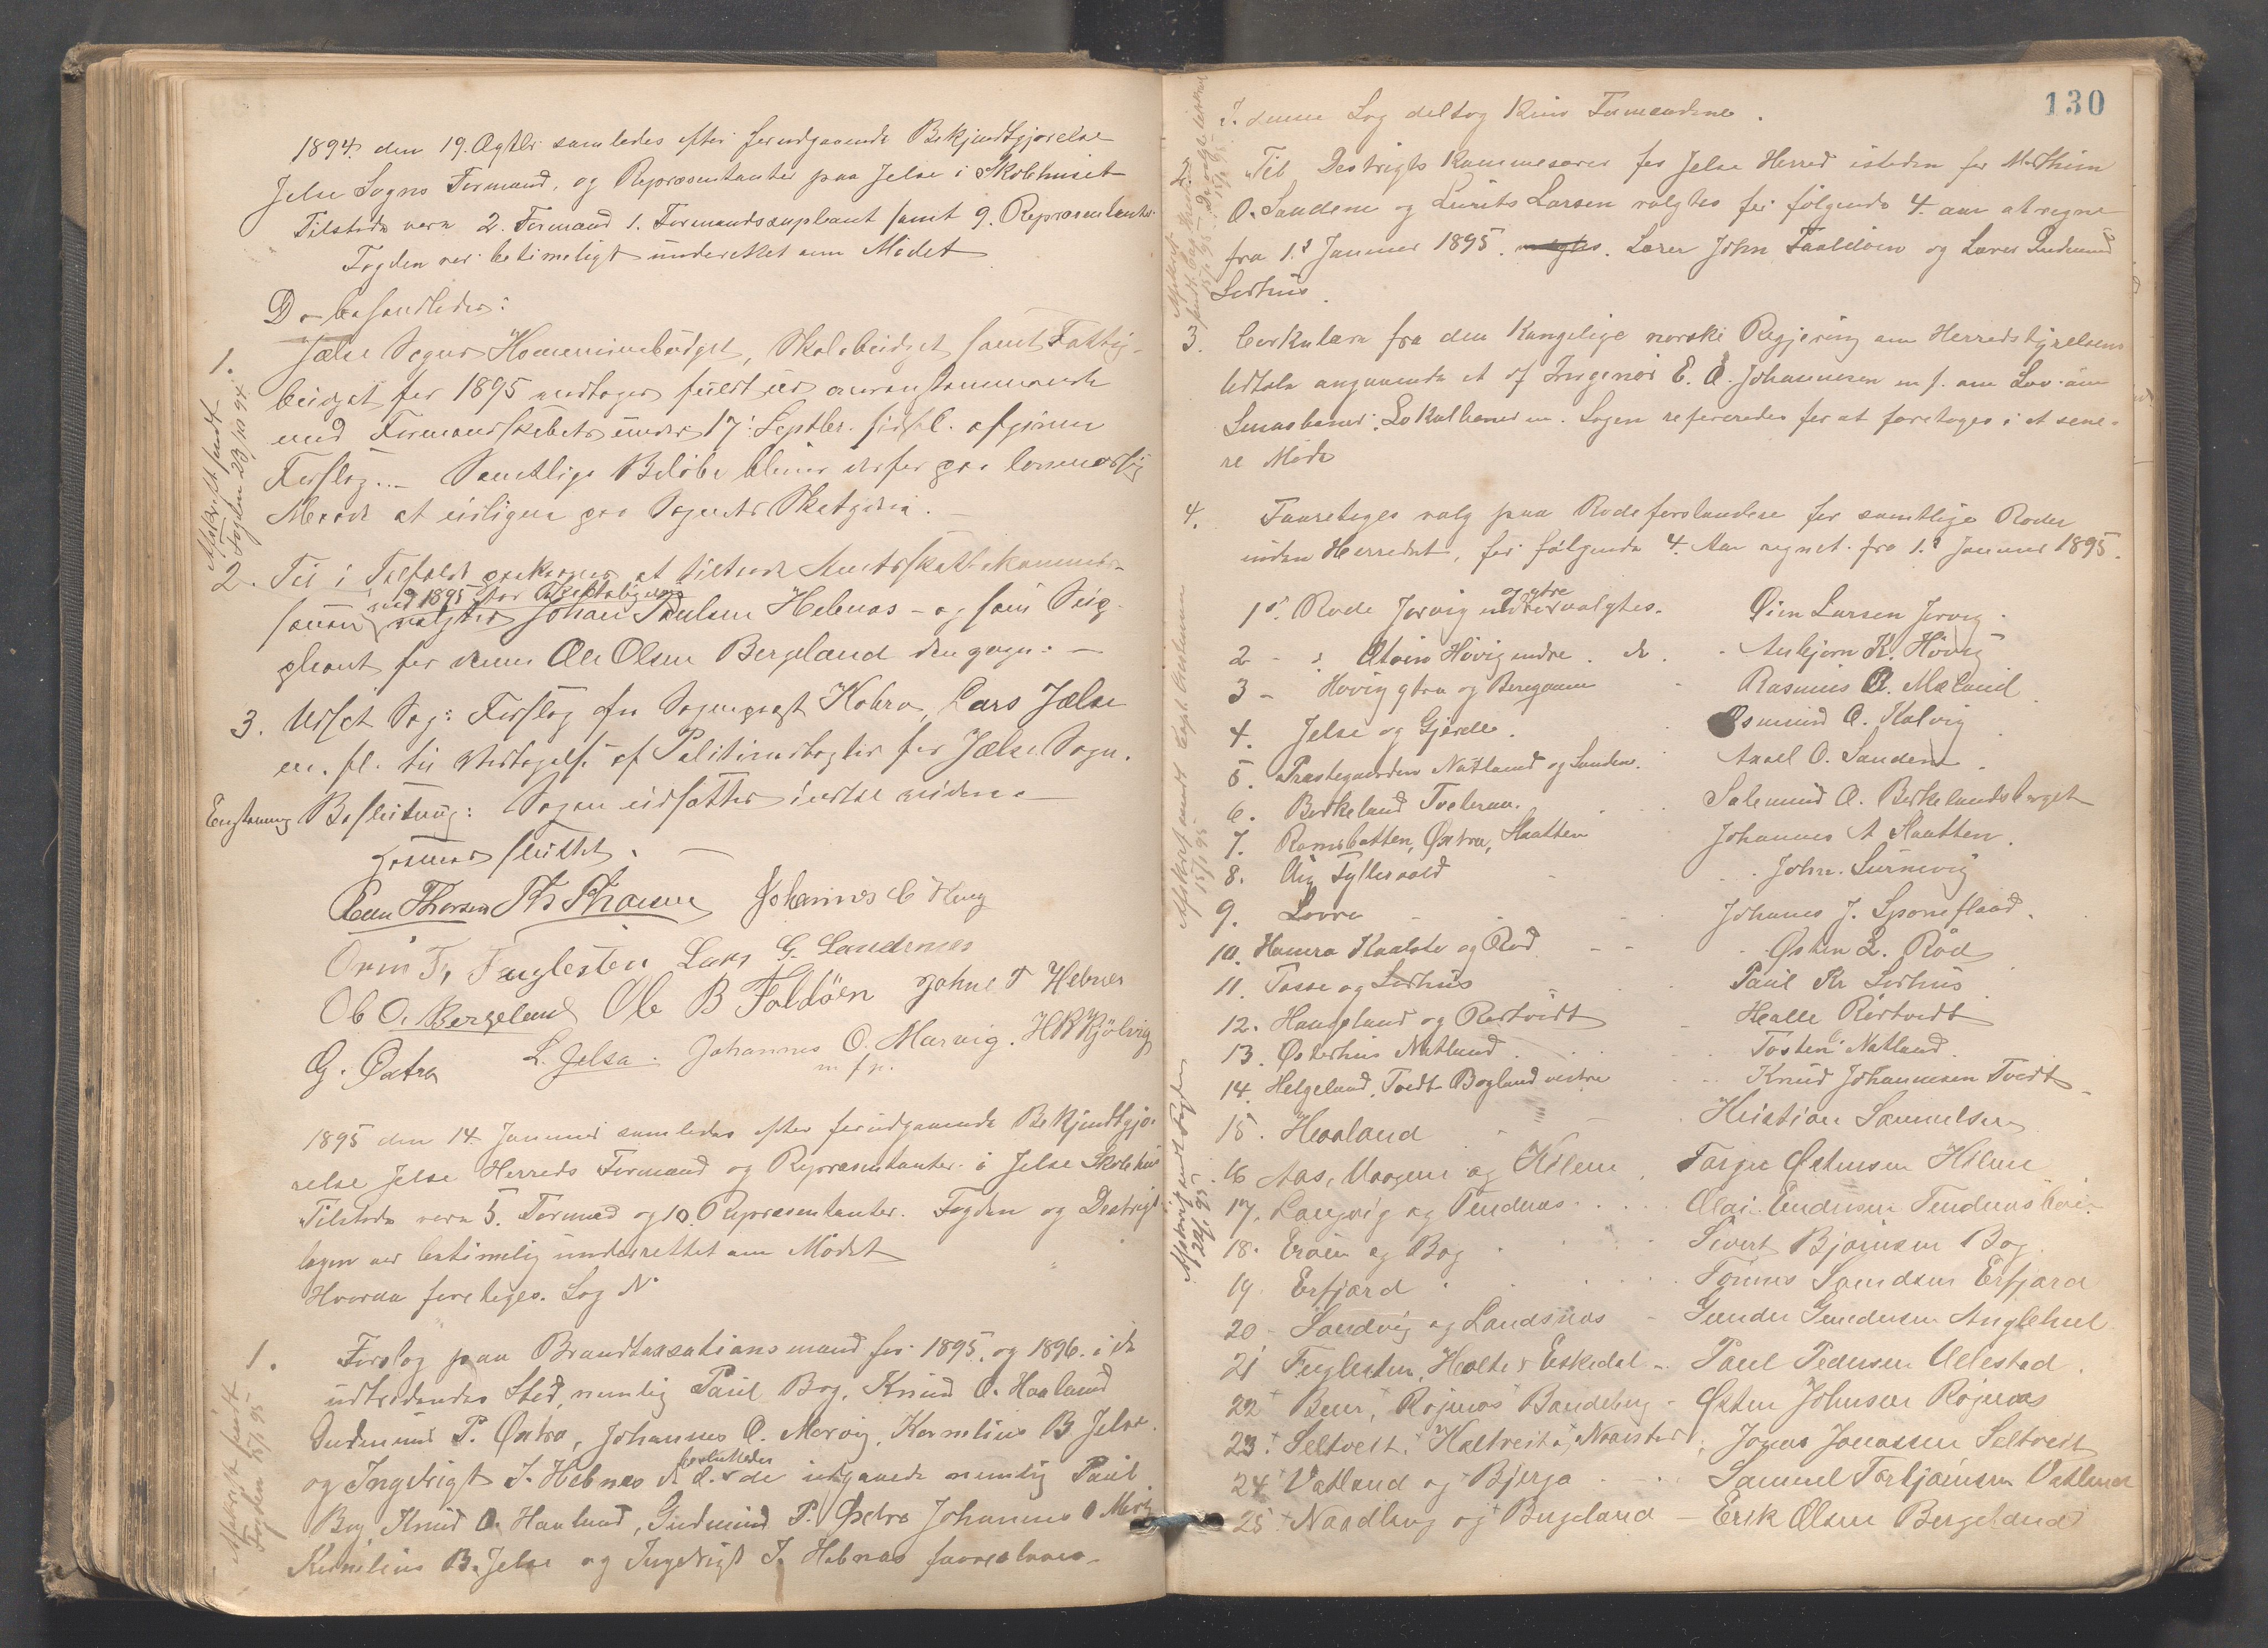 1894 den 19. Ogtbr. samledes efter forudgaaende Bekjendtgjørelse
Jelse Sogns Formænd, og Repræsentanter paa Jelse i Skolehuset
Tilstede vare 2. Formænd 1. Formandssupleant samt 9. Repræsentanter.
Fogden var betimeligt underettet om Mødet
Da behandledes:
1. Jælse Sogns Kommunebudget, Skolebudget samt Fattig-
budget for 1895 vedtoges fuldt ud overensstemmende
med Formandskabets under 17. Septbr. sidstl. afgivne
Forslag. — Samtlige Beløbe bliver derfor paa lovmæssig
Maade at udligne paa Sognets Skatydere. —
Afskrift sendt
Fogden 23/10 94
2. Til i Tilfælde paakræves at tiltræde Amtsskattekommis-
sionen valgtes Johan Paulsen Hebnæs – og som Sup-
med 1895 for Øie
pleant for denne Ole Olsen Bergeland den yngre. —
3. Udsat Sag: Forslag fra Sogneprest Kobro, Lars Jælse
m. fl. til Vedtagelse af Politivedtægter for Jælse Sogn.
Enstemmig Beslutning: Sagen udsættes indtil videre. —
Hermed sluttet. —
Peder Thorsen Th Thorsen Johannes C Haug
Orm T. Fuglesten Lars G. Landsnes
Ole O. Bergeland Ole B Foldøen Johne T Hebnes
G. Øxtra L. Jelsa. Johannes O. Marvig. H R Kjølvig
m. f. p.
1895 den 14. Januar samledes efter forudgaaende Bekjendtgjø-
relse Jelse Herreds Formænd og Repræsentanter i Jelse Skolehus
Tilstede vare 5. Formænd og 10. Repræsentanter. Fogden og Destrigts
lægen var betimelig underrettet om Mødet
Hvorda foretoges. Sag N
1. Forslag paa Brandtaxsationsmænd for 1895. og 1896. i de
udtrædendes Sted, nemlig Paul Bog, Knud O. Haaland
Gudmund P. Øxtra, Johannes O. Marvig, Kornelius B. Jelse.
og Ingebrigt J. Hebnæs besluttedes de udgaaede nemlig Paul
Bog Knud O. Haaland, Gudmund P. Øxtra Johannes O Marvig
Kornelius B. Jelse og Ingebrigt J. Hebnæs foreslaaes.
Afskrift sendt
Fogden 15/1 95
130
I denne Sag deltog kun Formændene.
2. Til Destrigts Kommesærer for Jelse Herred isteden for M. Thim
O. Sandene og Lurits Larsen valgtes for følgende 4. aar at regne
fra 1.s Januar 1895. valgtes. Lærer John Foldøen og Lærer Gudmund
Lerhus.
3. Cirkulære fra den Kongelige norske Regjering om Herredstyrelsens
Udtale angaaende et af Ingeniør E. A. Johannesen m. f. om Lov om
Smaabaner, Lokalbaner m. Sagen refereredes for at foretages i et sene-
re Møde
4. Foretoges valg paa Rodeforstandere for samtlige Roder
inden Herredet, for følgende 4. Aar regnet fra 1.s Januar 1895.
og ytre
1s. Rode Jørvig indre valgtes. Øien Larsen Jørvig.
2 - Høivig indre. Asbjørn K. Høivig
3 - Høivig ytre og Beregaren - Rasmus R. Mæland
4. Jelse og Gjerde. Osmund O. Kalvig
5. Præstegaarden Natland og Sanden. Axsel O. Sanden
6. Berkeland Tveteraa. Salomund A. Berkelandsberget
7. Ramsbotten, Øxtra, Haatten Johannes A Haatten.
8. Vig Fyllesvold - John. Surnevig
9. Lovra - Johanes J. Sponefland.
10. Hamra Kaalste og Rød - - Østen L. Rød
11. Tasse og Lerhus Paul Kr Lerhus
12. Haugeland og Røstvedt - Halle Røstvedt
13. Østerhus Natland Tosten Natland.
14. Helgeland, Tvedt Bogland vestre - Knud Johannesen Tvedt
15. Haaland Kristian Samuelsen
16 Aas, Vaagene og Hølene, Torger Østensen Hølene
17. Langvig og Tendnæs. Olai Endresen Tendnæs
18. Eroen og Bog Sivert Bjørnsen Bog
19. Erfjord Tønnes Samdsen Erfjord
20 - Sandvig og Landsnæs - Gunder Gundersen Anglehul
21 Fuglesten, Healte & Eskedal - Paul Pedersen Vælestad.
22 Beur, Røgnæs Bandeberg - Østen Johnsen Røgnæs
23. Seltveit. Haltveit og Noaester, Jonas Jonassen Seltveit
24 Vatland og Bjerga - Samuel Torbjørnsen Vatland
25 Naadberg og Bugeland - Erik Olsen Bergeland